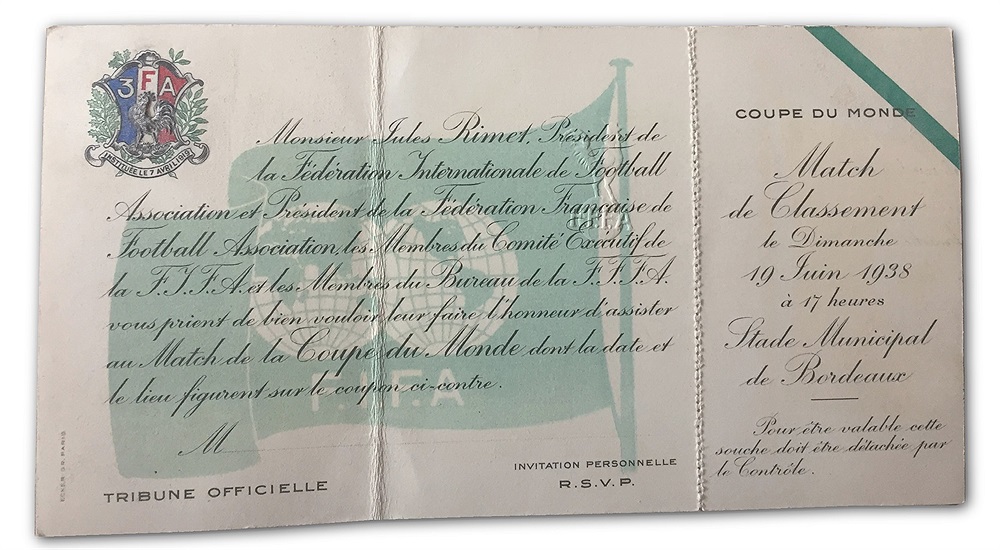 3 F A
INSTITUÉE LE 7 AVRIL 1919
Monsieur Jules Rimet, Président de
la Fédération Internationale de Football
Association et Président de la Fédération Française de
Football Association, les Membres du Comité Exécutif de
la F.I.F.A. et les Membres du Bureau de la F.F.F.A.
vous prient de bien vouloir leur faire l'honneur d'assister
au Match de la Coupe du Monde dont la date et
le lieu figurent sur le coupon ci-contre.
F.I.F.A
M
TRIBUNE OFFICIELLE
INVITATION PERSONNELLE
R.S.V.P.
COUPE DU MONDE
Match
de Classement
le Dimanche
19 Juin 1938
à 17 heures
Stade Municipal
de Bordeaux
Pour être valable cette
souche doit être détachée par
le Contrôle.